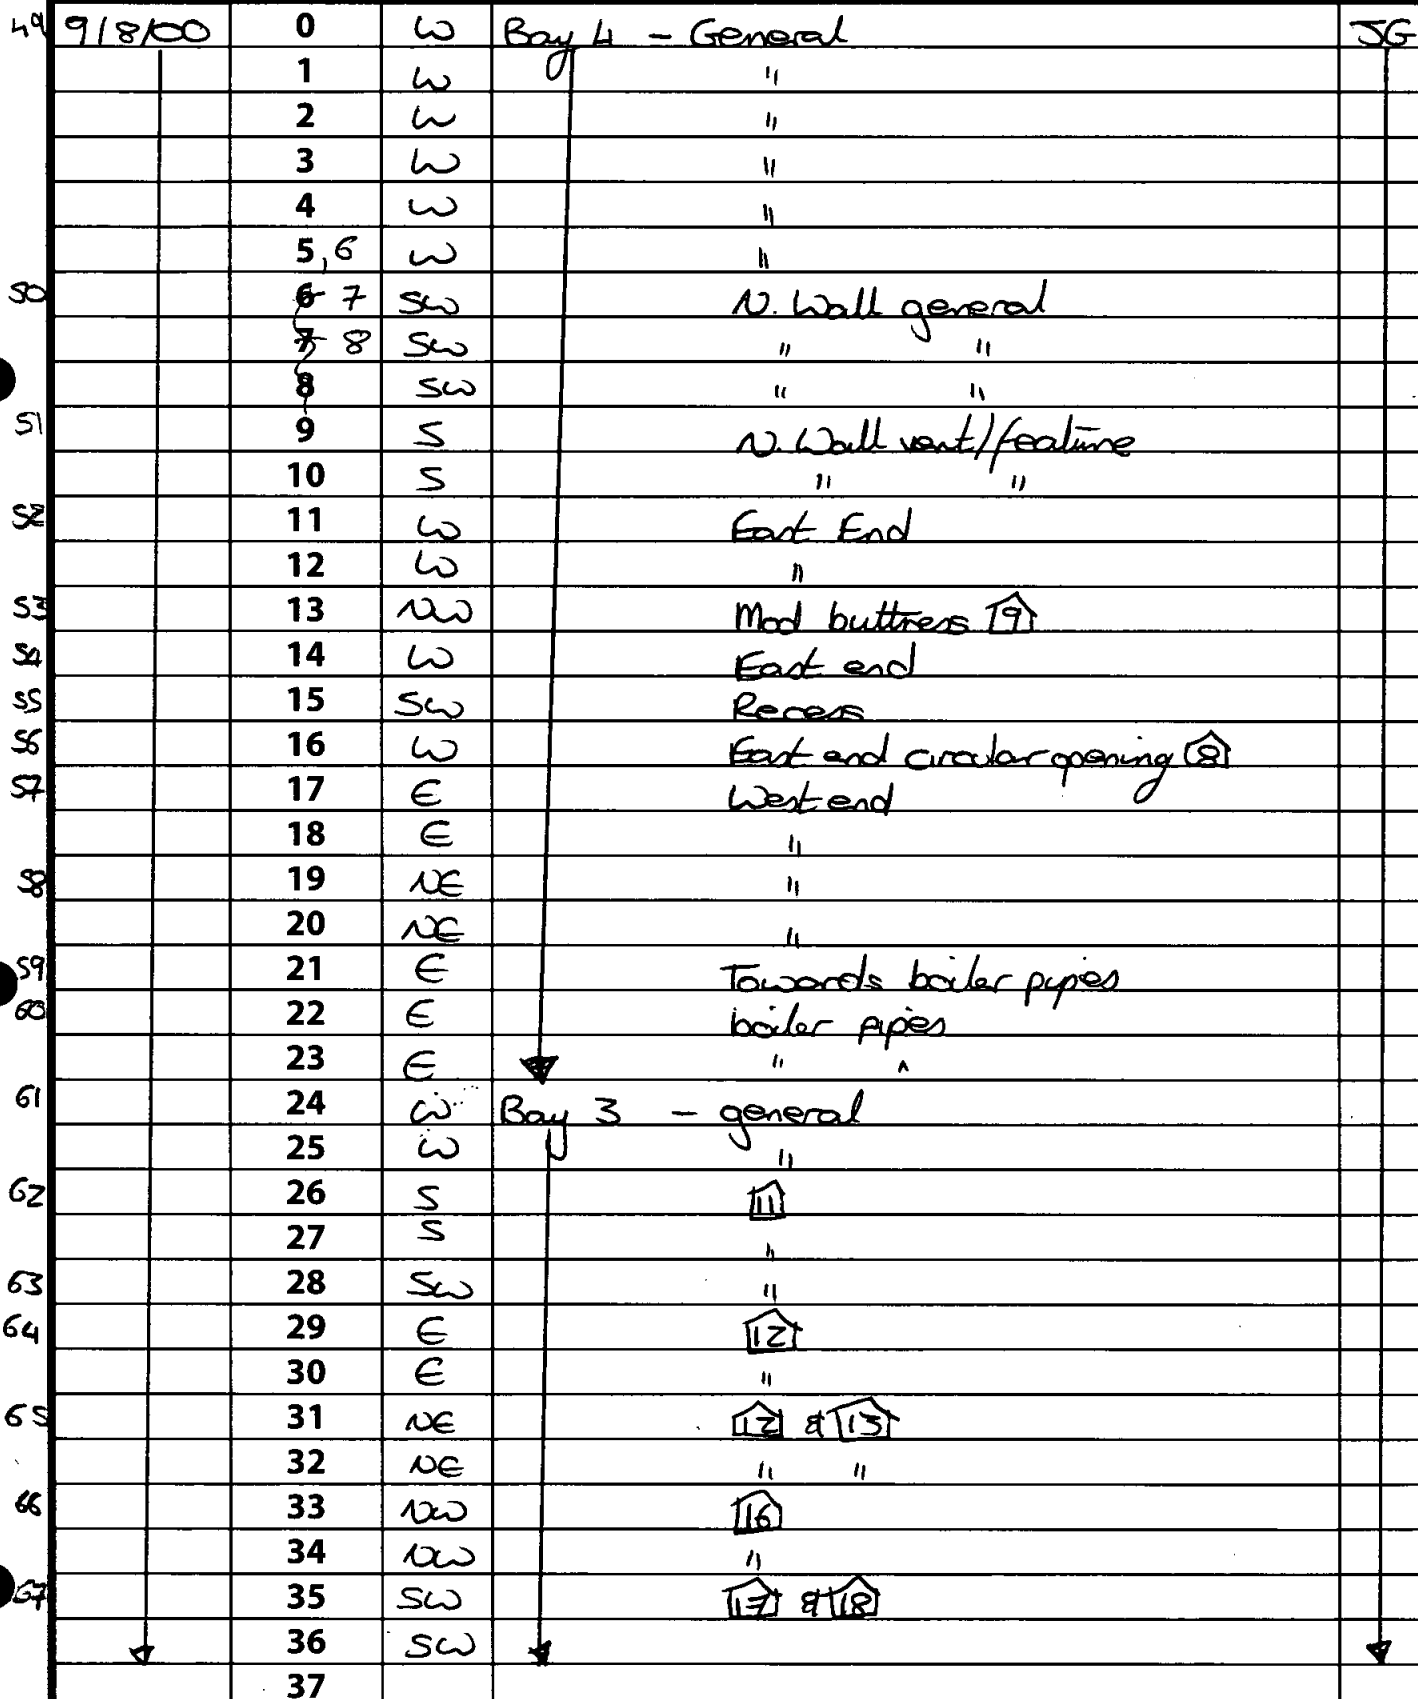 49 9/8/00 0 W Bay 4 - General JG
1 W "
2 W "
3 W "
4 W "
5,6 W "
50 6 7 SW N. Wall general
7 8 SW " "
8 SW " "
51 9 S N. Wall vent/feature
10 S " "
52 11 W East End
12 W "
53 13 NW Mod buttress 9
54 14 W East end
55 15 SW Recess
56 16 W East end circular opening 8
57 17 E West end
18 E "
58 19 NE "
20 NE "
59 21 E Towards boiler pipes
60 22 E boiler pipes
23 E " ^
61 24 W Bay 3 - general
25 W "
62 26 S 11
27 S "
63 28 SW "
64 29 E 12
30 E "
65 31 NE 12 & 13
32 NE " "
66 33 NW 16
34 NW "
67 35 SW 17 & 18
36 SW
37